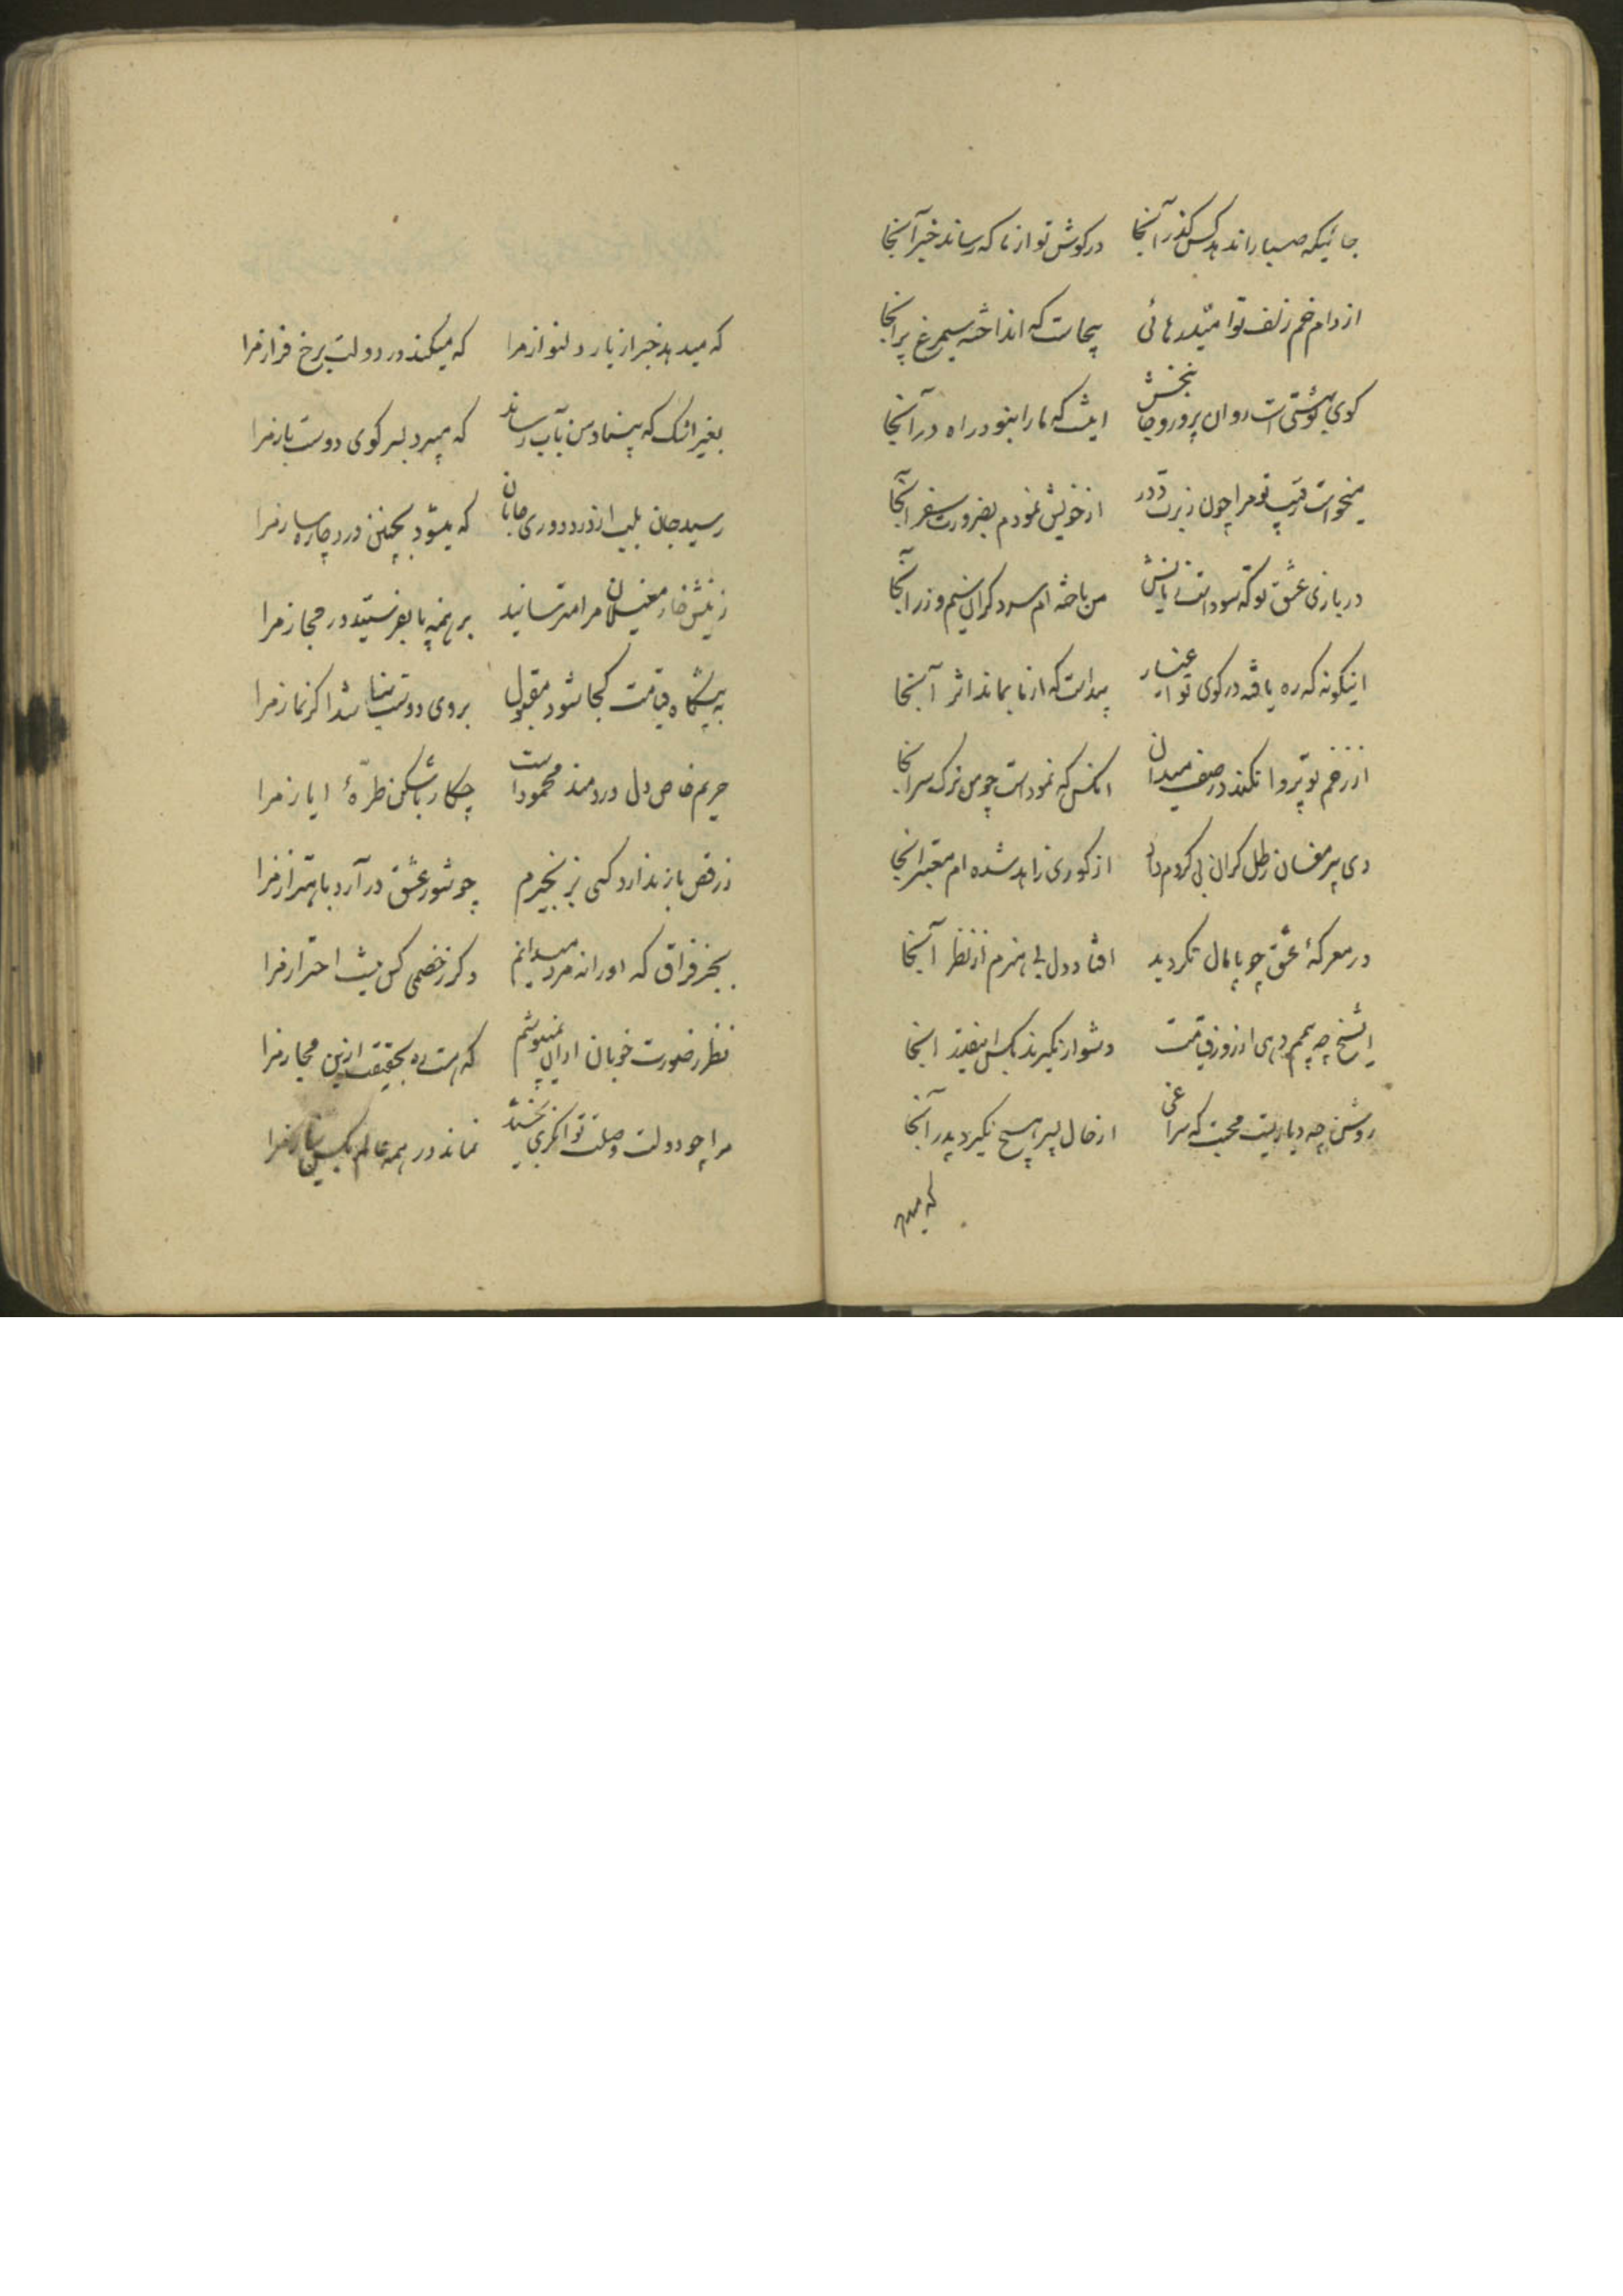 جائیکه صبا را ندهد کس گذر آنجا در گوش تو از ما که رساند خبر آنجا
از دام خم زلف تو امید رهائی بیجاست که انداخته سیمرغ پر آنجا
کوی تو بهشتی است روان پرور و جانبخش اینست که ما را نبود راه در آنجا
میخواست رقیب تو مرا چون ز برت دور از خویش نمودم بضرورت سفر آنجا
در بازی عشق تو که سود است زیانش من باخته ام سر و کران سیم و زر آنجا
اینگونه که ره یافته در کوی تو اغیار پیداست که از ما بماند اثر آنجا
از زخم تو پروا نکند در صف میدان آنکس که نموداست چو من ترک سر آنجا
دی پیر مغان رطل گران بی کروم داد از کوری زاهد شده ام معتبر آنجا
در معرکهٔ عشق چو پامال نگردید افتاد دل بی هنرم از نظر آنجا
ای شیخ چه بیمم دهی از روز قیامت دشوار نگیرند بکس اینقدر آنجا
روشن چه دیاریست محبت که سراغی از حال پسر هیچ نگیرد پدر آنجا
که میدهد
که میدهد خبر از یار دلنواز مرا که میکند در دولت برخ فراز مرا
بغیر اشک که بنیاد من بآب رساند که میبرد بسر کوی دوست باز مرا
رسید جان بلب از درد دوری جانان که میشود بچنین درد چاره ساز مرا
ز نیش خار مغیلان مرا مترسانید برهنه پا بفرستید در حجاز مرا
به پیشگاه قیامت کجا شود مقبول بروی دوست نباشد اگر نماز مرا
حریم خاص دل دردمند محموداست چکار باشکن طرّهٔ ایاز مرا
ز رقص باز ندارد کسی بزنجیرم چو شور عشق در آرد باهتزاز مرا
بجز فراق که او را نه مرد میدانم دگر ز خصمی کس نیست احتراز مرا
نظر ز صورت خوبان از آن نمیپوشم که هست ره بحقیقت ازین مجاز مرا
مرا چو دولت وصلت توانگری بخشید نماند در همه عالم بکس نیاز مرا